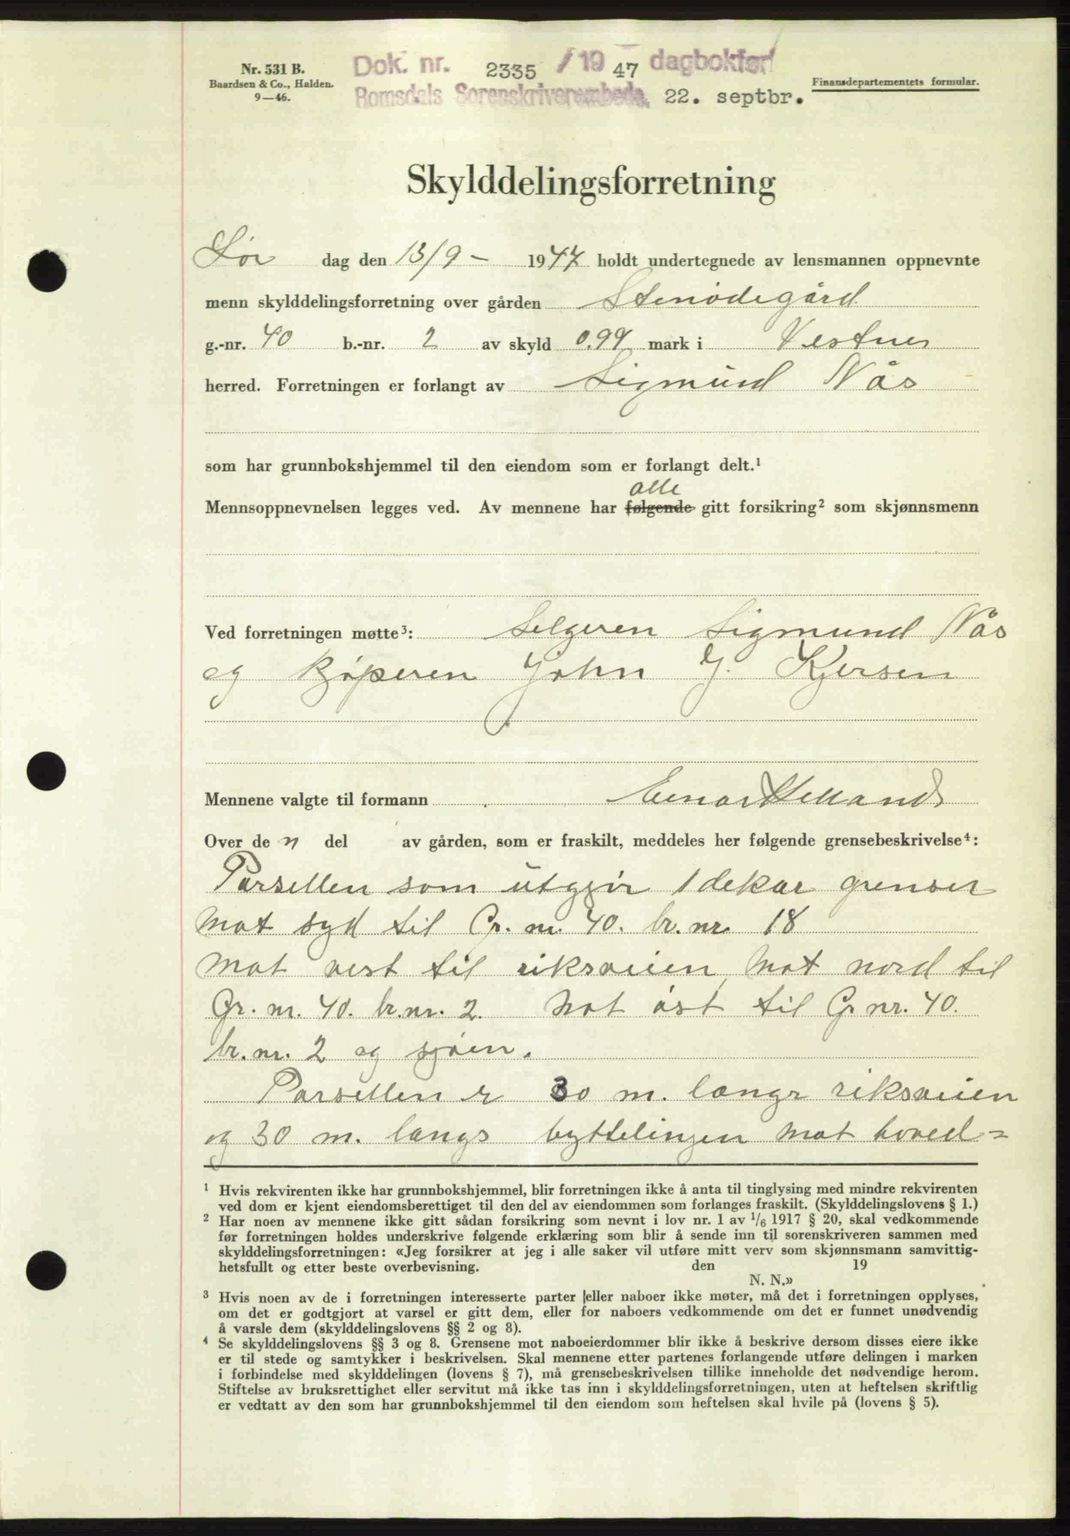 Nr. 531 B.
Baardsen & Co., Halden.
9—46.
Dok. nr. 2335 / 19 47 dagbokført
Romsdals Sorenskriverembede, 22. septbr.
Finansdepartementets formular.
Skylddelingsforretning
Lør dag den 13/9 - 1947 holdt undertegnede av lensmannen oppnevnte
menn skylddelingsforretning over gården Stenødegård
g.-nr. 40 b.-nr. 2 av skyld 0.99 mark i Vestnes
herred. Forretningen er forlangt av Sigmund Nås
som har grunnbokshjemmel til den eiendom som er forlangt delt.¹
alle
Mennsoppnevnelsen legges ved. Av mennene har følgende gitt forsikring² som skjønnsmenn
Ved forretningen møtte³: Selgeren Sigmund Nås
og kjøperen John J. Kjersem
Mennene valgte til formann Einar Helland
Over de n del av gården, som er fraskilt, meddeles her følgende grensebeskrivelse⁴:
Parsellen som utgjør 1 dekar grenser
mot syd til Gr. nr. 40. br. nr. 18
mot vest til riksveien, mot nord til
Gr. nr. 40. br. nr. 2. Mot øst til Gr nr. 40.
br. nr. 2 og sjøen.
Parsellen er 30 m. langs riksveien
og 30 m. langs byttelinjen mot hoved=
¹ Hvis rekvirenten ikke har grunnbokshjemmel, blir forretningen ikke å anta til tinglysing med mindre rekvirenten
ved dom er kjent eiendomsberettiget til den del av eiendommen som forlanges fraskilt. (Skylddelingslovens § 1.)
² Har noen av mennene ikke gitt sådan forsikring som nevnt i lov nr. 1 av 1/6 1917 § 20, skal vedkommende
før forretningen holdes underskrive følgende erklæring som blir å sende inn til sorenskriveren sammen med
skylddelingsforretningen: «Jeg forsikrer at jeg i alle saker vil utføre mitt verv som skjønnsmann samvittig-
hetsfullt og etter beste overbevisning. den 19
N. N.»
³ Hvis noen av de i forretningen interesserte parter eller naboer ikke møter, må det i forretningen opplyses,
om det er godtgjort at varsel er gitt dem, eller for naboers vedkommende om det er funnet unødvendig
å varsle dem (skylddelingslovens §§ 2 og 8).
⁴ Se skylddelingslovens §§ 3 og 8. Grensene mot naboeierdommer blir ikke å beskrive dersom disses eiere ikke
er til stede og samtykker i beskrivelsen. Skal mennene etter partenes forlangende utføre delingen i marken
i forbindelse med skylddelingen (lovens § 7), må grensebeskrivelsen tillike inneholde det nødvendige herom.
Stiftelse av bruksrettighet eller servitut må ikke tas inn i skylddelingsforretningen, uten at heftelsen skriftlig
er vedtatt av den som har grunnbokshjemmel til den eiendom som heftelsen skal hvile på (lovens § 5).